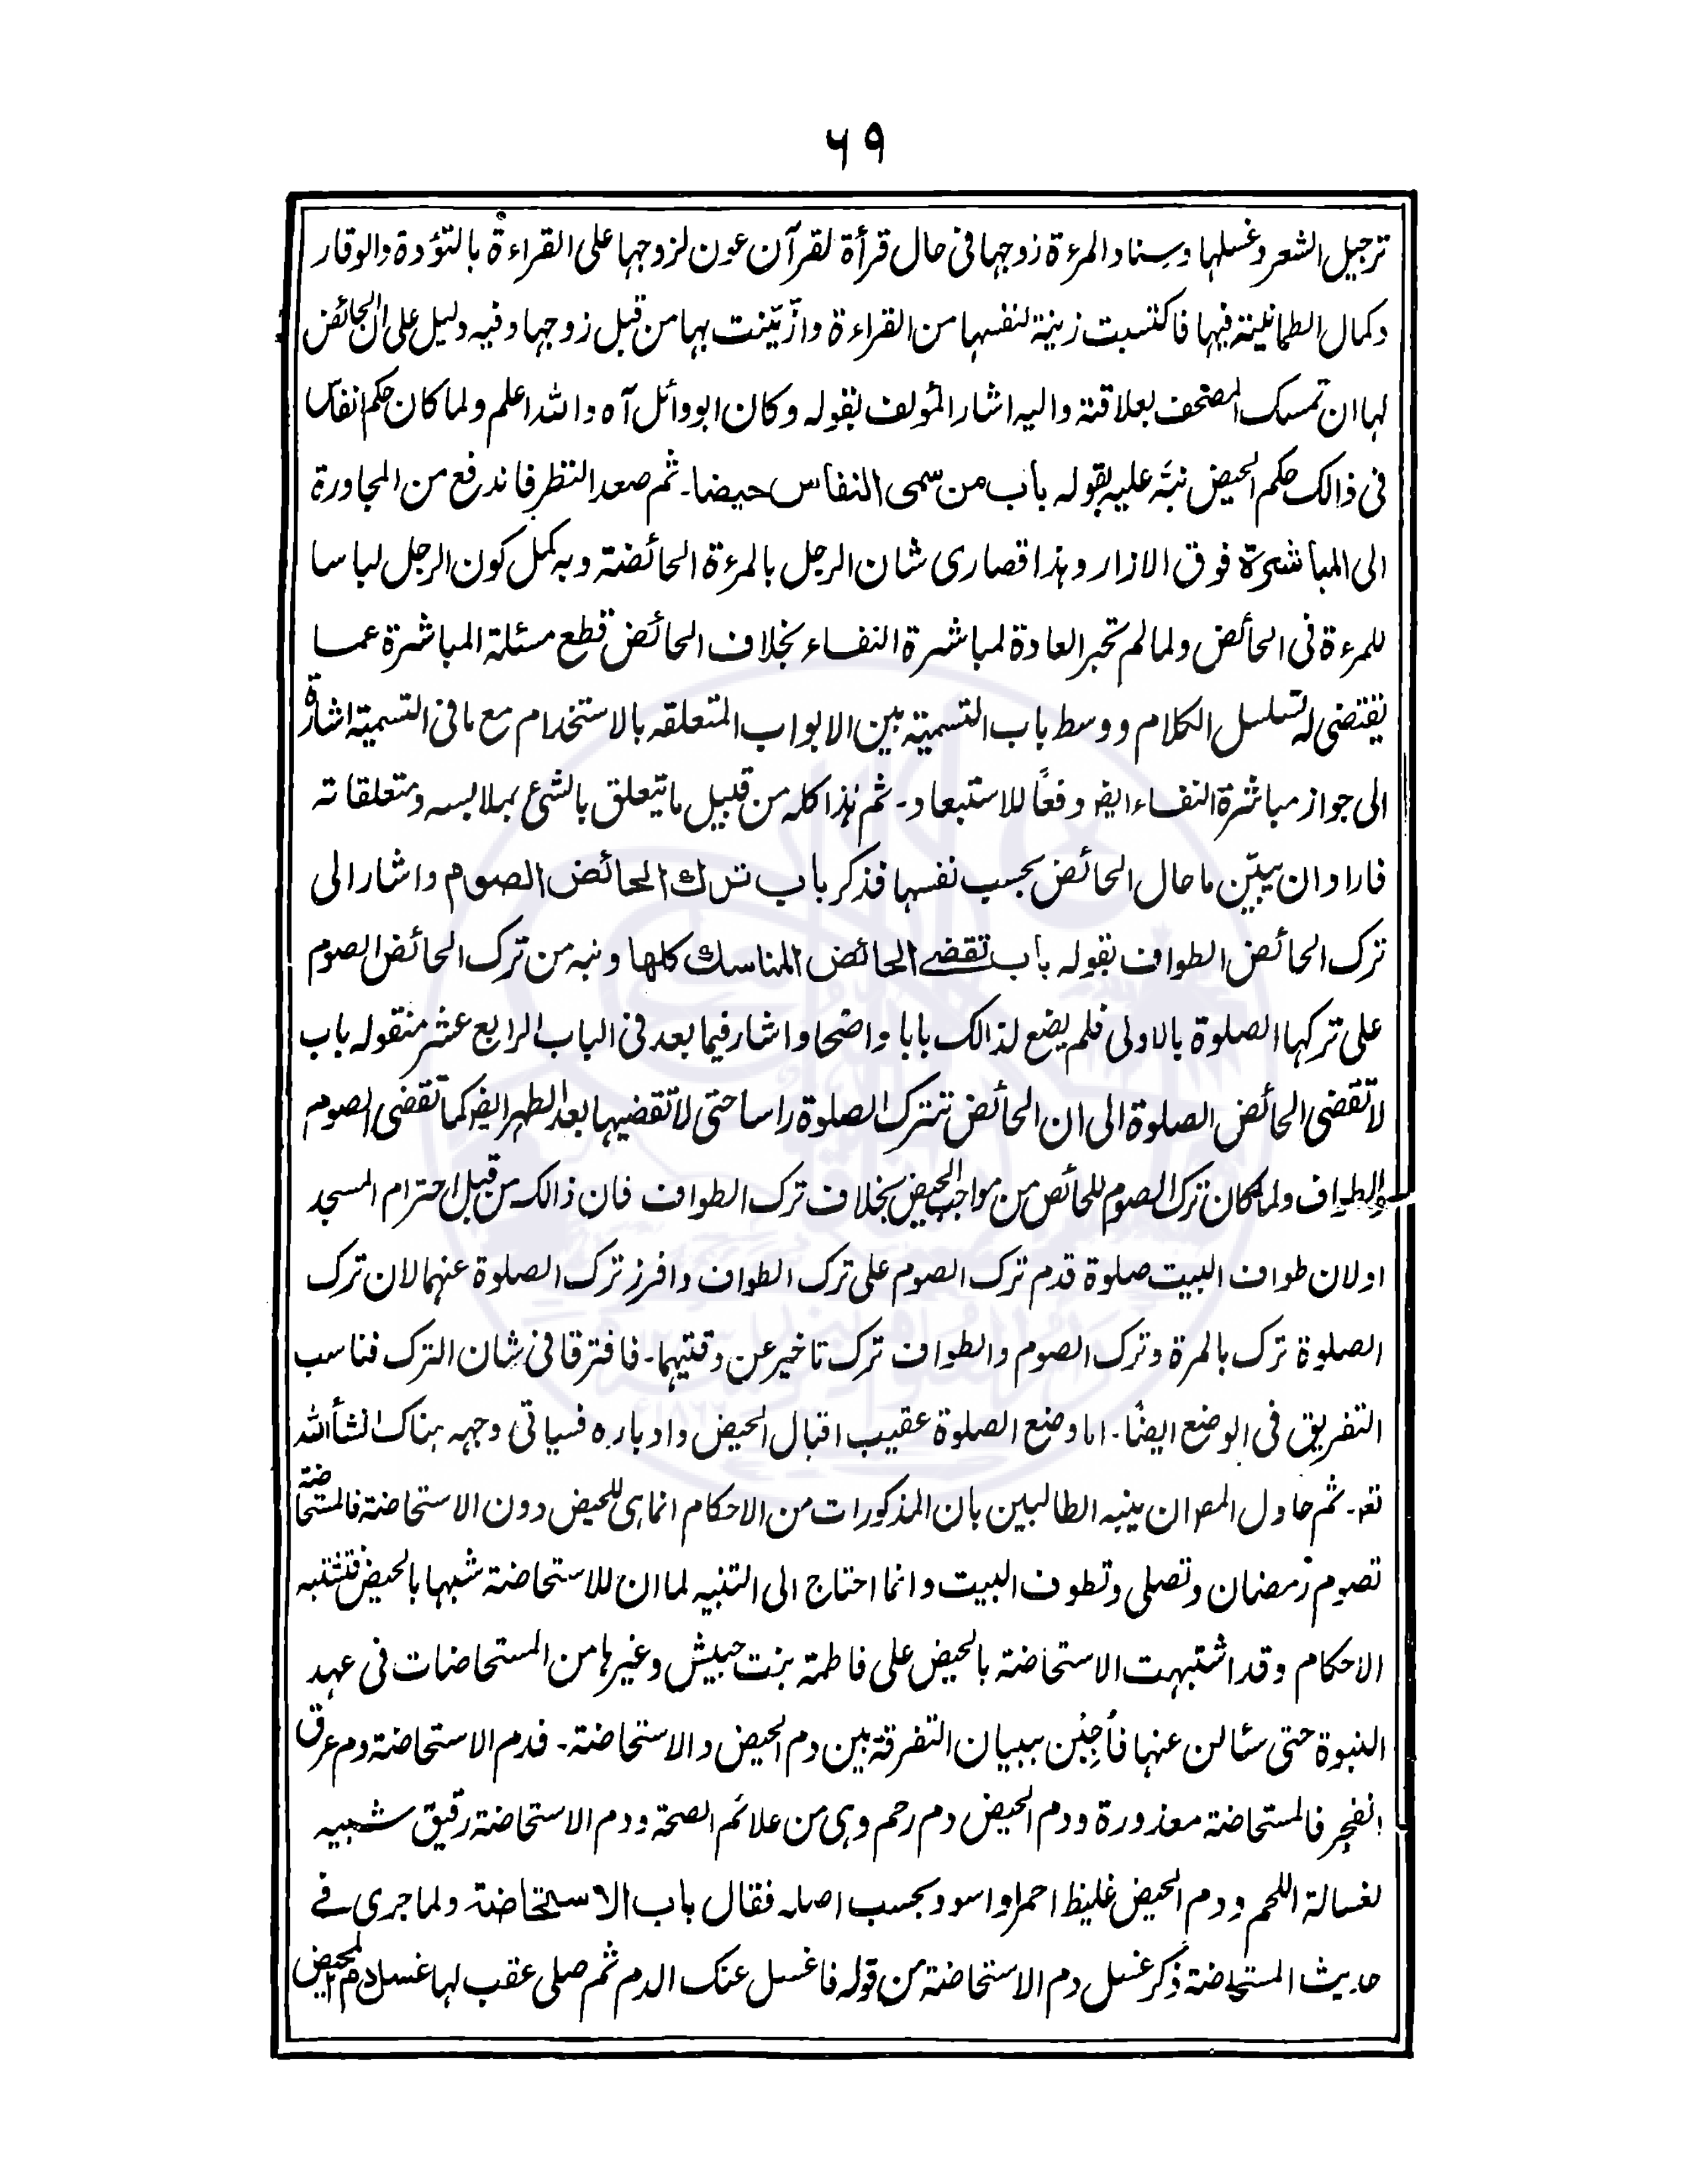 ٦٩
ترجيل الشعر وغسلها وسناد المرءة زوجها فى حال قرأة القرآن عون لزوجها على القراءة بالتؤدة والوقار
وكمال الطمانينة فيها فاكتسبت زينة لنفسها من القراءة وازّيّنت بها من قبل زوجها وفيه دليل على ان الحائض
لها ان تمسك المصحف بعلاقته واليه اشار المؤلف بقوله وكان ابو وائل آه والله اعلم ولما كان حكم النفاس
فى ذالك حكم الحيض نبّه عليه بقوله باب من سمى النفاس حيضا۔ ثم صعد النظر فاندرفع من المجاورة
الى المباشرة فوق الازار وهذا قصارى شان الرجل بالمرءة الحائضة وبه كمل كون الرجل لباسا
للمرءة فى الحائض ولما لم تجر العادة لمباشرة النفساء بخلاف الحائض قطع مسئلة المباشرة عما
يقتضى له تسلسل الكلام ووسط باب التسمية بين الابواب المتعلقه بالاستخدام مع ما فى التسمية اشارة
الى جواز مباشرة النفساء ايضا دفعاً للاستبعاد۔ ثم هذا كله من قبيل ما يتعلق بالشئ بملابسه ومتعلقاته
فاراد ان يبيّن ما حال الحائض بحسب نفسها فذكر باب ترك الحائض الصوم واشار الى
ترك الحائض الطواف بقوله باب تقضے الحائض المناسك كلها ونبه من ترك الحائض الصوم
على تركها الصلوة بالاولى فلم يضع لذالك بابا واضحا واشار فيما بعد فى الباب الرابع عشر منقوله باب
لا تقضى الحائض الصلوة الى ان الحائض تترك الصلوة راسا حتى لا تقضيها بعد الطهر ايضا كما تقضى الصوم
والطواف ولما كان ترك الصوم للحائض من مواجب الحيض بخلاف ترك الطواف فان ذالك من قبل احترام المسجد
او لان طواف البيت صلوة قدم ترك الصوم على ترك الطواف وافرز ترك الصلوة عنهما لان ترك
الصلوة ترك بالمرة وترك الصوم والطواف ترك تاخير عن وقتيهما۔ فافترقا فى شان الترك فناسب
التفريق فى الوضع ايضًا۔ اما وضع الصلوة عقيب اقبال الحيض وادباره فسياتى وجهه هناك انشأ الله
تعہ۔ ثم حاول المصـ ان ينبه الطالبين بان المذكورات من الاحكام انما هى للحيض دون الاستحاضة فالمستحاضة
تصوم رمضان وتصلى وتطوف البيت وانما احتاج الى التنبيه لما ان للاستحاضة شبها بالحيض فتشتبه
الاحكام وقد اشتبهت الاستحاضة بالحيض على فاطمة بنت حبيش وغيرها من المستحاضات فى عهد
النبوة حتى سئالن عنها فأجِبْن ببيان التفرقة بين دم الحيض والاستحاضة۔ فدم الاستحاضة دم عرق
انفجر فالمستحاضة معذورة ودم الحيض دم رحم وهى من علائم الصحة ودم الاستحاضة رقيق شبيه
لغسالة اللحم ودم الحيض غليظ احمر او اسود بحسب اصله فقال باب الاستحاضة ولما جرى فے
حديث المستحاضة ذكر غسل دم الاستحاضة من قوله فاغسل عنك الدم ثم صلى عقب لها غسل دم المحيض